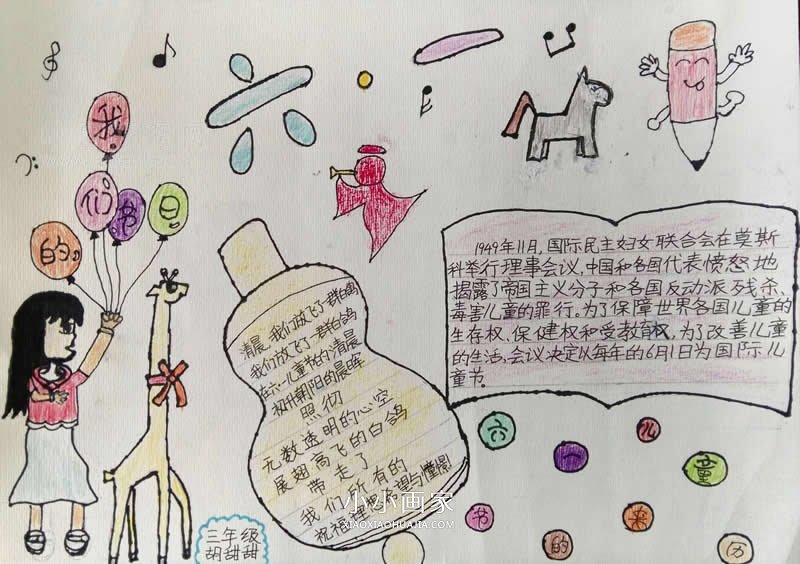 六·一
我们的节日
1949年11月,国际民主妇女联合会在莫斯
科举行理事会议,中国和各国代表愤怒地
揭露了帝国主义分子和各国反动派残杀、
毒害儿童的罪行。为了保障世界各国儿童的
生存权、保健权和受教育权,为了改善儿童
的生活,会议决定以每年的6月1日为国际儿
童节。
清晨,我们放飞了一群白鸽
我们放飞了一群白鸽
在六一儿童节的清晨
初升朝阳的晨晖
照彻
无数透明的心空
展翅高飞的白鸽
带走了
我们所有的
祝福理想希望与憧憬
六一儿童
节的来历
三年级
胡甜甜
小小画家
XIAOXIAOHUAJIA.COM